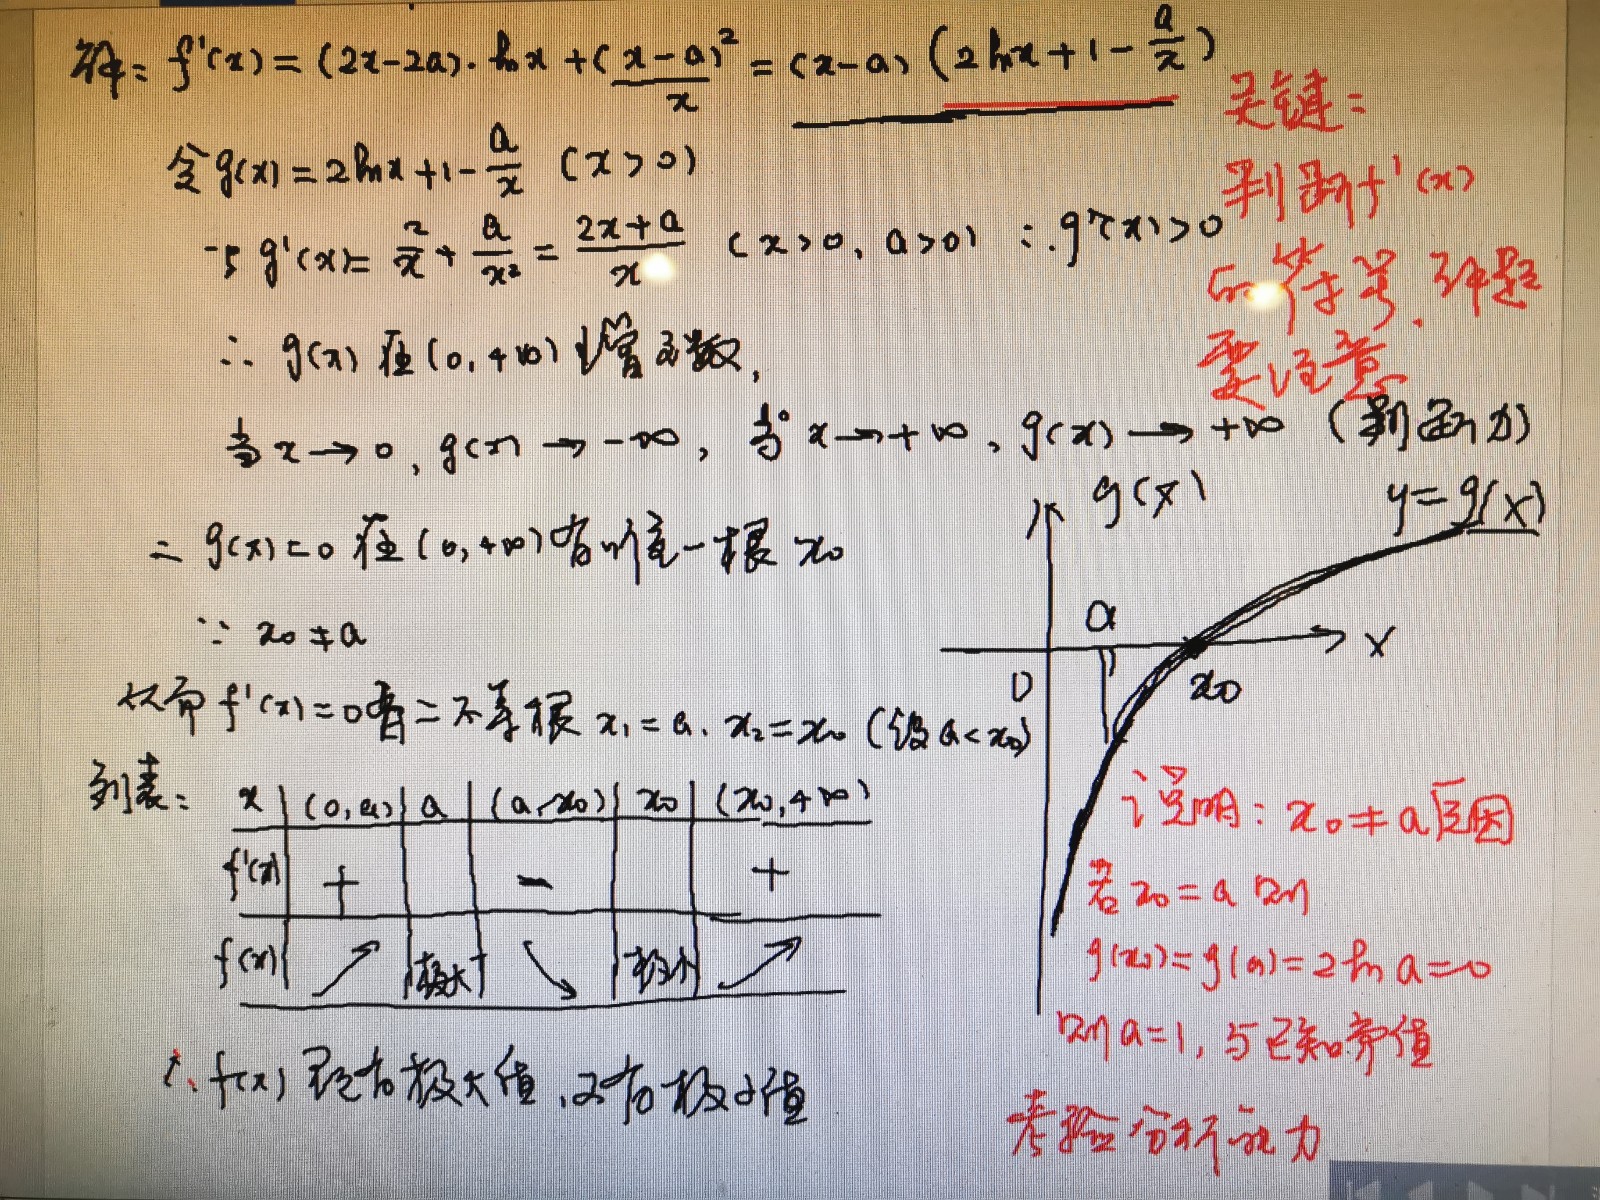 解: f'(x)=(2x-2a)·lnx+(x-a)²/x=(x-a)(2lnx+1-a/x)
令g(x)=2lnx+1-a/x (x>0)
g'(x)=2/x+a/x²=(2x+a)/x (x>0, a>0) ∴g'(x)>0
∴g(x)在(0,+∞)增函数,
当x→0,g(x)→-∞,当x→+∞,g(x)→+∞ (判断力)
g(x)=0在(0,+∞)有唯一根x₀
∵x₀≠a
从而f'(x)=0有二不等根x₁=a、x₂=x₀(设a<x₀)
列表:
x (0,a) a (a,x₀) x₀ (x₀,+∞)
f'(x) + − +
f(x) ↗ 极大 ↘ 极小 ↗
∴f(x)既有极大值,又有极小值
关键:
判断f'(x)
的符号.解题
要注意
g(x)
y=g(x)
a
x
0
x₀
说明:x₀≠a原因
若x₀=a 则
g(x₀)=g(a)=2lna=0
则a=1,与已知矛值
考验分析能力